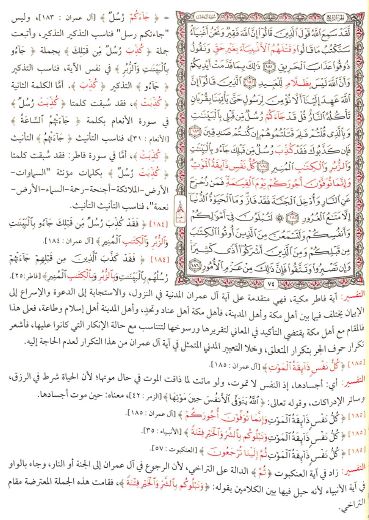 لَّقَدْ سَمِعَ اللَّهُ قَوْلَ الَّذِينَ قَالُوا إِنَّ اللَّهَ فَقِيرٌ وَنَحْنُ أَغْنِيَاءُ
سَنَكْتُبُ مَا قَالُوا وَقَتْلَهُمُ الْأَنبِيَاءَ بِغَيْرِ حَقٍّ وَنَقُولُ
ذُوقُوا عَذَابَ الْحَرِيقِ ١٨١ ذَٰلِكَ بِمَا قَدَّمَتْ أَيْدِيكُمْ
وَأَنَّ اللَّهَ لَيْسَ بِظَلَّامٍ لِّلْعَبِيدِ ١٨٢ الَّذِينَ قَالُوا إِنَّ
اللَّهَ عَهِدَ إِلَيْنَا أَلَّا نُؤْمِنَ لِرَسُولٍ حَتَّىٰ يَأْتِيَنَا بِقُرْبَانٍ
تَأْكُلُهُ النَّارُ قُلْ قَدْ جَاءَكُمْ رُسُلٌ مِّن قَبْلِي بِالْبَيِّنَاتِ
وَبِالَّذِي قُلْتُمْ فَلِمَ قَتَلْتُمُوهُمْ إِن كُنتُمْ صَادِقِينَ ١٨٣
فَإِن كَذَّبُوكَ فَقَدْ كُذِّبَ رُسُلٌ مِّن قَبْلِكَ جَاءُو بِالْبَيِّنَاتِ
وَالزُّبُرِ وَالْكِتَابِ الْمُنِيرِ ١٨٤ كُلُّ نَفْسٍ ذَائِقَةُ الْمَوْتِ
وَإِنَّمَا تُوَفَّوْنَ أُجُورَكُمْ يَوْمَ الْقِيَامَةِ فَمَن زُحْزِحَ
عَنِ النَّارِ وَأُدْخِلَ الْجَنَّةَ فَقَدْ فَازَ وَمَا الْحَيَاةُ الدُّنْيَا
إِلَّا مَتَاعُ الْغُرُورِ ١٨٥ لَتُبْلَوُنَّ فِي أَمْوَالِكُمْ
وَأَنفُسِكُمْ وَلَتَسْمَعُنَّ مِنَ الَّذِينَ أُوتُوا الْكِتَابَ
مِن قَبْلِكُمْ وَمِنَ الَّذِينَ أَشْرَكُوا أَذًى كَثِيرًا
وَإِن تَصْبِرُوا وَتَتَّقُوا فَإِنَّ ذَٰلِكَ مِنْ عَزْمِ الْأُمُورِ ١٨٦
٧٤
- ﴿ جَاءَكُمْ رُسُلٌ ﴾ [آل عمران: ١٨٣]، وليس
"جاءتكم رسل" فناسب التذكير التذكير، وأتبعت
جملة ﴿ كُذِّبَ رُسُلٌ مِّن قَبْلِكَ ﴾ بجملة ﴿ جَاءُو
بِالْبَيِّنَاتِ وَالزُّبُرِ ﴾ في نفس الآية، فناسب التذكير
﴿ جَاءُو ﴾ التذكير ﴿ كُذِّبَ ﴾. أمَّا الكلمة الثانية
﴿ كُذِّبَتْ ﴾، فقد سُبقت كلمتا ﴿ كُذِّبَتْ رُسُلٌ ﴾
في سورة الأنعام بكلمة ﴿ جَاءَتْهُمُ السَّاعَةُ ﴾
[الأنعام: ٣١]، فناسب التأنيث ﴿ جَاءَتْهُمُ ﴾ التأنيث
﴿ كُذِّبَتْ ﴾، أمَّا في سورة فاطر: فقد سُبقت كلمتا
﴿ كُذِّبَتْ رُسُلٌ ﴾ بكلمات مؤنثة "السماوات-
الأرض-الملائكة-أجنحة-رحمة-السماء-الأرض-
نعمة"، فناسب التأنيث التأنيث.
[١٨٤] ﴿ فَقَدْ كُذِّبَ رُسُلٌ مِّن قَبْلِكَ جَاءُو بِالْبَيِّنَاتِ
وَالزُّبُرِ وَالْكِتَابِ الْمُنِيرِ ﴾ [آل عمران: ١٨٤].
[١٨٤] ﴿ فَقَدْ كَذَّبَ الَّذِينَ مِن قَبْلِهِمْ جَاءَتْهُمْ
رُسُلُهُم بِالْبَيِّنَاتِ وَبِالزُّبُرِ وَبِالْكِتَابِ الْمُنِيرِ ﴾ [فاطر: ٢٥].
التفسير: آية فاطر مكية، فهي متقدمة على آية آل عمران المدنية في النزول، والاستجابة إلى الدعوة والإسراع إلى
الإيمان يختلف فيها بين أهل مكة وأهل المدينة، فأهل مكة أهل عناد وتحدٍ، وأهل المدينة أهل إسلام وطاعة، فعل هذا
فالمقام مع أهل مكة يقتضي التأكيد في المعاني لتقريرها ورسوخها لتتناسب مع حالة الإنكار التي كانوا عليها، فأشعر
تكرار حرف الجر بتكرار المتعلق، وخلا التعبير المدني المتمثل في آية آل عمران من هذا التكرار لعدم الحاجة إليه.
[١٨٥] ﴿ كُلُّ نَفْسٍ ذَائِقَةُ الْمَوْتِ ﴾ [آل عمران: ١٨٥].
التفسير: أي: أجسادها، إذ النفس لا تموت، ولو ماتت لما ذاقت الموت في حال موتها؛ لأن الحياة شرط في الرزق،
وسائر الإدراكات، وقوله تعالى: ﴿ اللَّهُ يَتَوَفَّى الْأَنفُسَ حِينَ مَوْتِهَا ﴾ [الزمر: ٤٢]، معناه: حين موت أجسادها.
[١٨٥] ﴿ كُلُّ نَفْسٍ ذَائِقَةُ الْمَوْتِ وَإِنَّمَا تُوَفَّوْنَ أُجُورَكُمْ ﴾ [آل عمران: ١٨٥].
[١٨٥] ﴿ كُلُّ نَفْسٍ ذَائِقَةُ الْمَوْتِ وَنَبْلُوكُم بِالشَّرِّ وَالْخَيْرِ فِتْنَةً ﴾ [الأنبياء: ٣٥].
[١٨٥] ﴿ كُلُّ نَفْسٍ ذَائِقَةُ الْمَوْتِ ثُمَّ إِلَيْنَا تُرْجَعُونَ ﴾ [العنكبوت: ٥٧].
التفسير: زاد في آية العنكبوت ﴿ ثُمَّ ﴾ الدالة على التراخي، لأن الرجوع في آل عمران إلى الجنة أو النار، وجاء بالواو
في آية الأنبياء لأنه حيل فيها بين الكلامين بقوله: ﴿ وَنَبْلُوكُم بِالشَّرِّ وَالْخَيْرِ فِتْنَةً ﴾، فقامت هذه الجملة المعترضة مقام
التراخي.